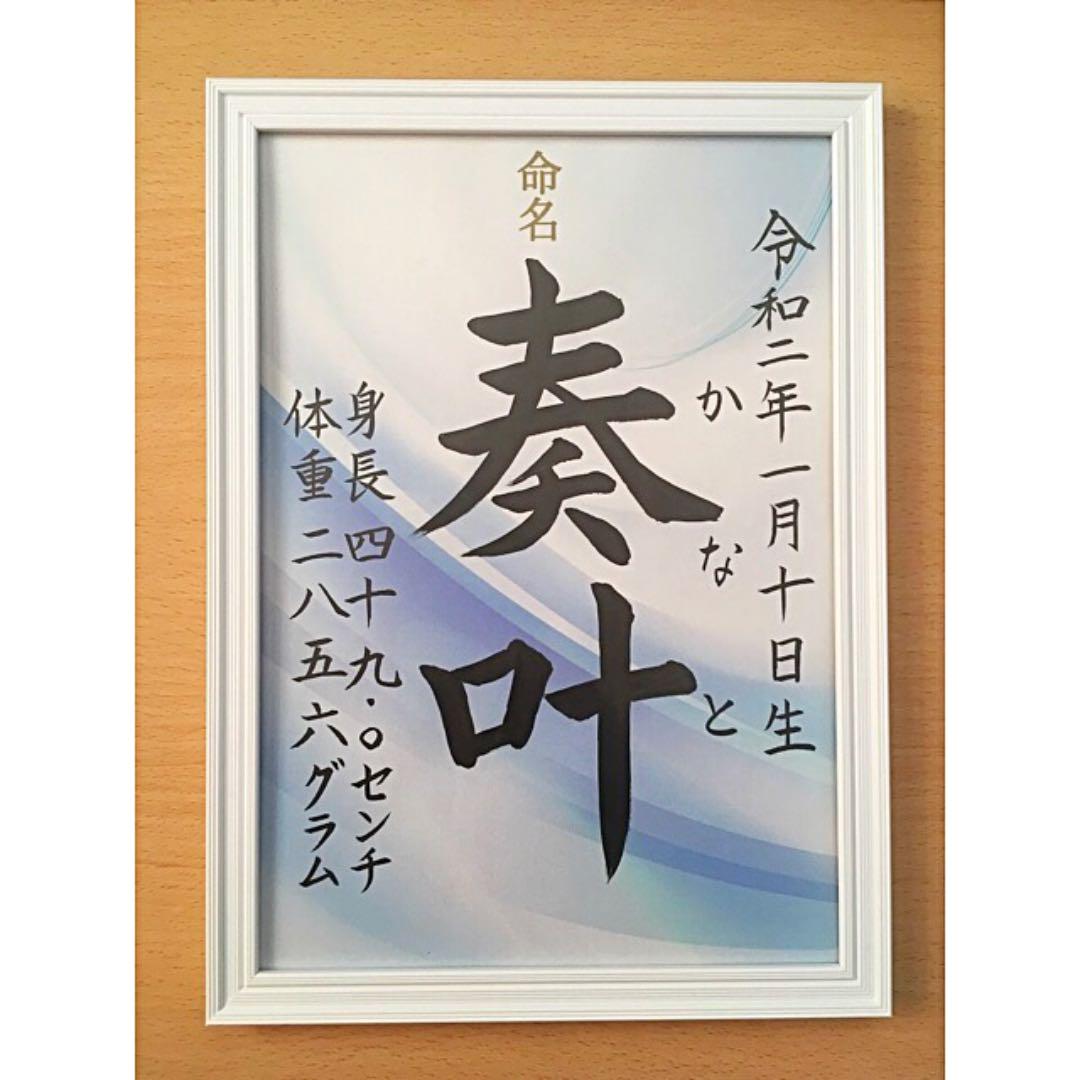 命名
令和二年一月十日生
かなと
奏叶
身長四十九.〇センチ
体重二八五六グラム